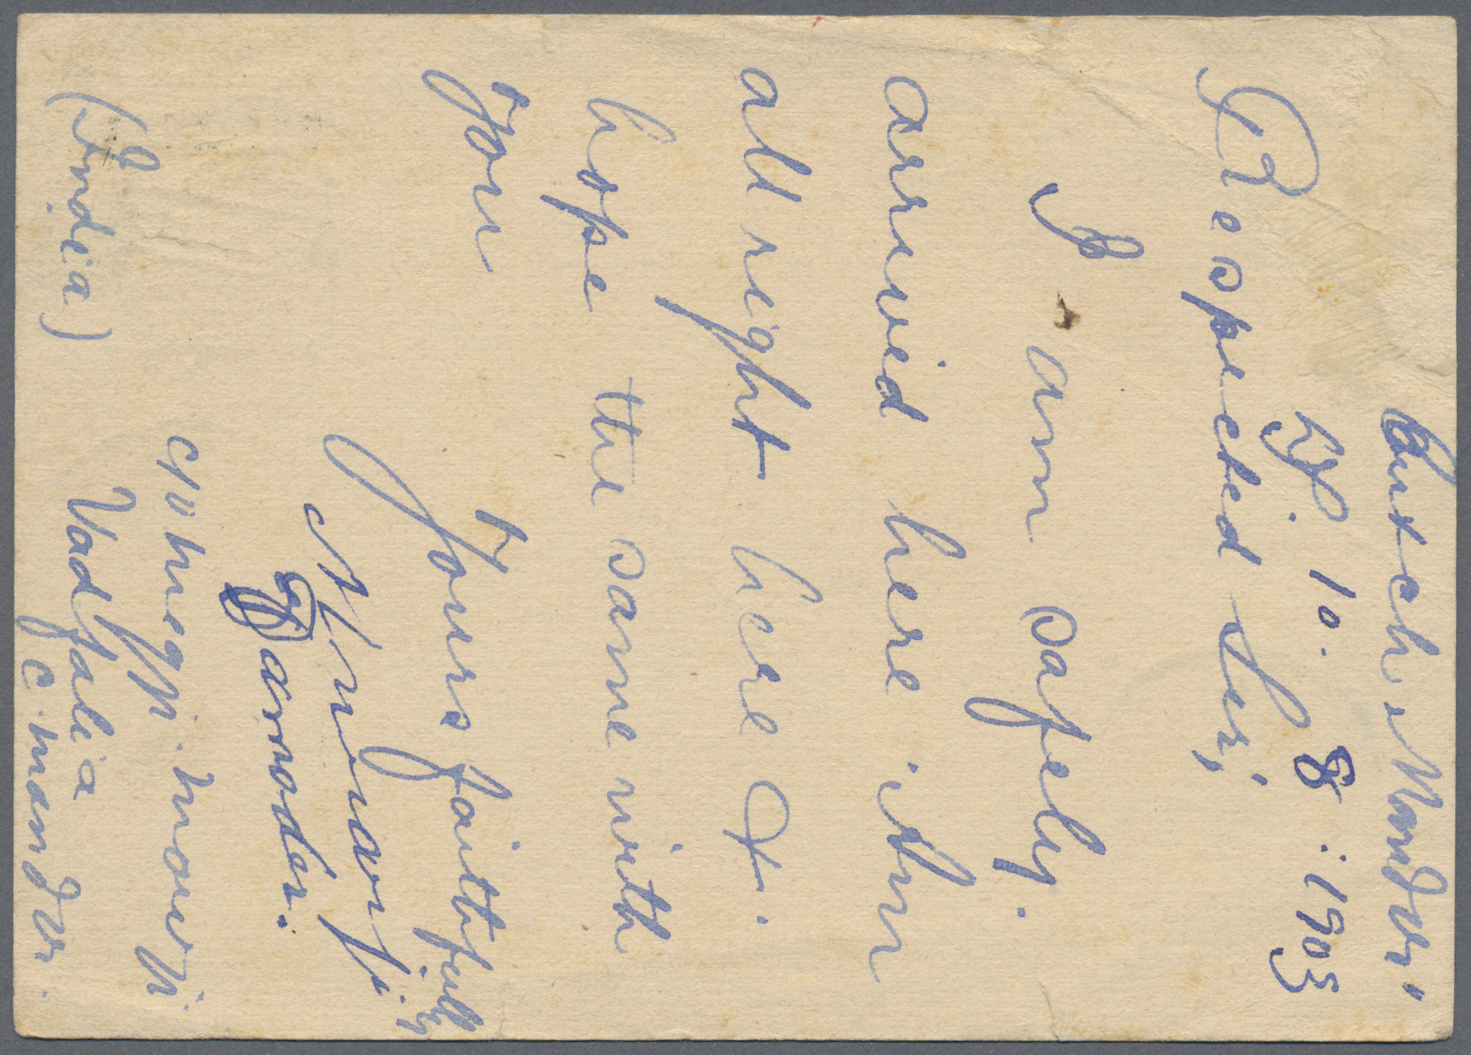 Cutch Mandvi
10. 8. 1903
Respected Sir,
I am safely
arrived here. Am
all right here &
hope the same with
you
Yours faithfully
Damoder.
c/o Megji. Mowji
Vadfalia
C. Mandvi.
(India)